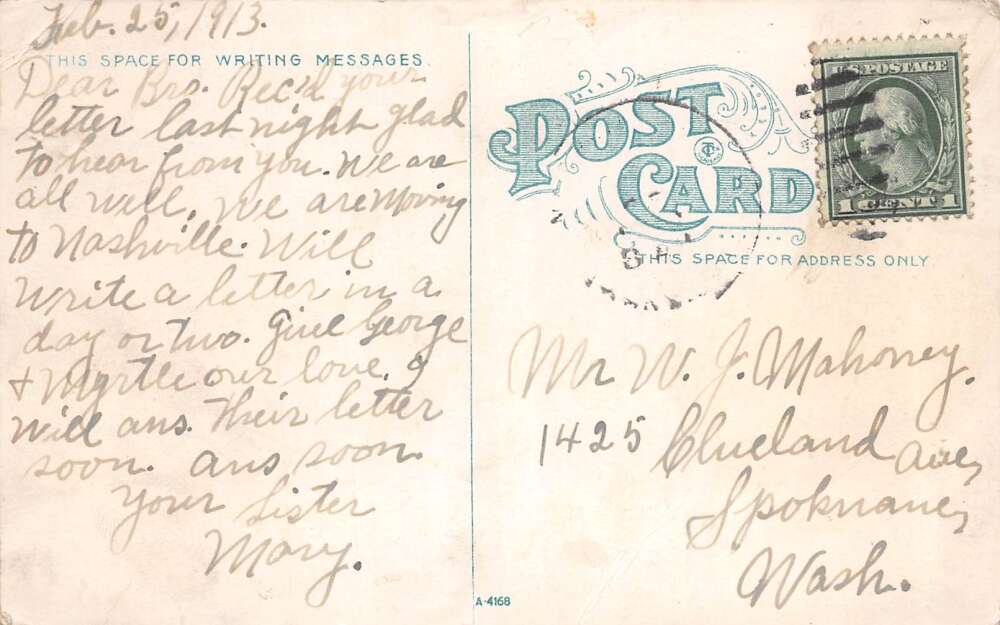 Feb. 25, 1913.
THIS SPACE FOR WRITING MESSAGES.
Dear Bro. Rec'd your
letter last night glad
to hear from you. We are
all well, we are moving
to Nashville. Will
write a letter in a
day or two. Give George
& Myrtle our love. I
will ans. their letter
soon. ans soon.
Your Sister
Mary.
POST
CARD
THIS SPACE FOR ADDRESS ONLY.
U.S. POSTAGE
1 CENT 1
Mr W. J. Mahoney.
1425 Clueland Ave,
Spoknane,
Wash.
A-4168